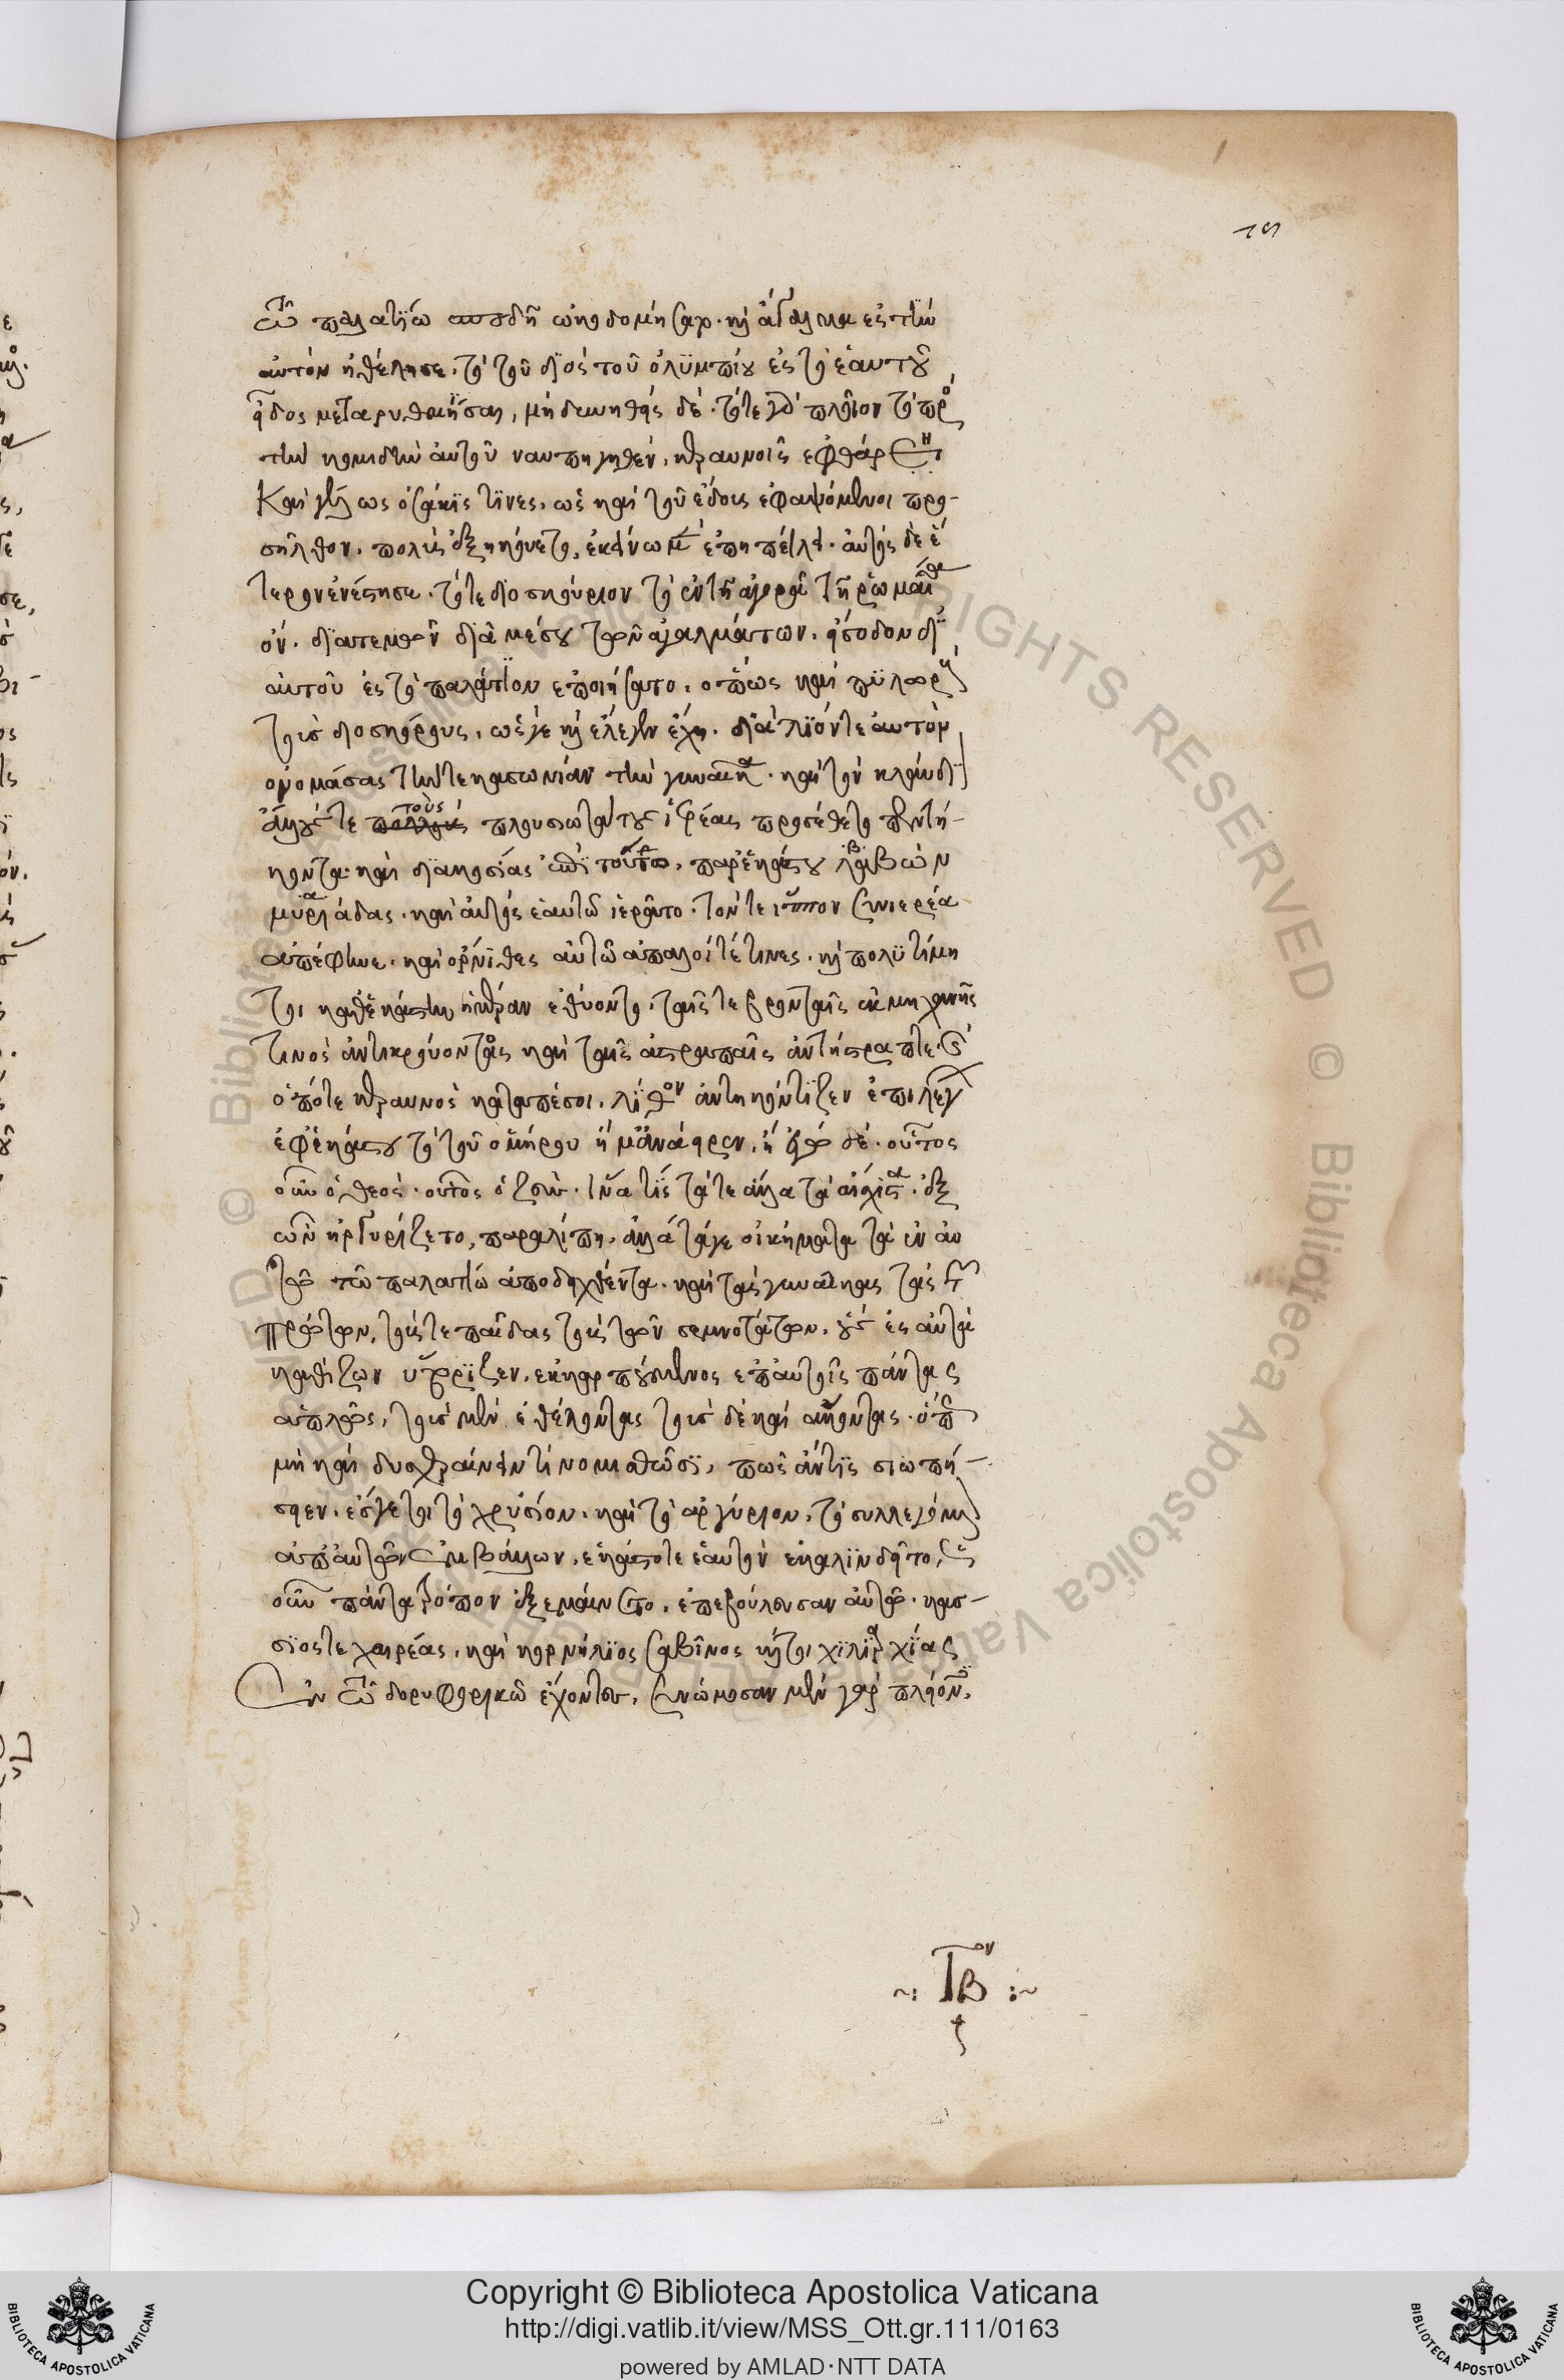 ις
τῷ παλατίῳ σπουδῇ ᾠκοδομήσατο. κὶ ἄγαλμα ἐς τὴν
αὐτὸν ἠθέλησε. τὸ τοῦ διὸς τοῦ ὀλυμπίου ἐς τὸ ἑαυτοῦ
εἶδος μεταρυθμῆσαι, μὴ δυνηθεὶς δὲ. τότε γὰρ πλοῖον τὸ πρὸς
τὴν κομιδὴν αὐτοῦ ναυπηγηθὲν, κεραυνοῖς ἐφθάρη
καὶ γέλως ὁσάκις τινὲς, ὡς καὶ τοῦ ἕδους ἐφαψόμενοι προ-
σῆλθον. πολὺς ἐξηκούετο, ἐκείνῳ μὲν ἐπηπείλει. αὐτὸς δὲ ἕ
τερον ἐνέστησε. τότε διοσκούριον τὸ ἐν τῇ ἀγορᾷ τῇ ῥωμαίᾳ
ὂν. διατεμὼν διὰ μέσου τῶν ἀγαλμάτων. εἴσοδον δι
αὐτοῦ ἐς τὸ παλάτιον ἐποιήσατο. ὅπως καὶ πυλωροὺς
τοὺς διοσκόρους, ὥς γε κὶ ἔλεγεν ἔχῃ. διάλιόν τε αὑτὸν
ὀνομάσας τήν τε καισωνίαν τὴν γυναῖκα. καὶ τὸν κλαύδι
ἄλλους τε τοὺς πλουσιωτάτους ἱερέας προσέθετο πεντή-
κοντα καὶ διακοσίας ἐπὶ τούτῳ, παρ' ἑκάστου λαβὼν
μυριάδας. καὶ αὐτὸς ἑαυτῷ ἱερᾶτο. τόν τε ἵππον συνιερέα
ἀπέφηνε. καὶ ὄρνιθες αὐτῷ ἁπαλοί τέ τινες. κὶ πολυτίμη
τοι καθ' ἑκάστην ἡμέραν ἐθύοντο. ταῖς τε βρονταῖς ἐκ μηχανῆς
τινὸς ἀντικρούοντας καὶ ταῖς ἀστραπαῖς ἀντήστραπτε. καὶ
ὁπότε κεραυνὸς καταπέσοι. λίθον ἀντηκόντιζεν ἐπιλέγων
ἐφ' ἑκάστου τὸ τοῦ ὁμήρου ἤ μ' ἀνάειρ', ἢ ἐγὼ σέ. οὗτος
οὖν ὁ θεὸς. οὗτος ὁ ζεὺς. ἵνα τις τά τε ἄλλα τὰ αἴσχιστα. ἐξ
ὧν ἠργυρίζετο, παραλίπῃ. ἀλλὰ τά γε οἰκήματα τὰ ἐν αὐ
τῷ τῷ παλατίῳ ἀποδειχθέντα. καὶ τὰς γυναῖκας τὰς τῶν
πρώτων, τούς τε παῖδας τοὺς τῶν σεμνοτάτων. οὓς ἐς αὐτὰ
καθίζων ὕβριζεν. ἐκκαρπούμενος ἐπ' αὐτοῖς πάντας
ἁπλῶς, τοὺς μὲν ἐθέλοντας τοὺς δὲ καὶ ἄκοντας. ὅπως
μὴ καὶ δυσχεραίνειν τι νομισθῶσι, πῶς ἄν τις σιωπή-
σειεν. ἔς γε τοι τὸ χρυσίον. καὶ τὸ ἀργύριον. τὸ συλλεγόμενον
ἀπ' αὐτῶν ἐμβάλλων. ἑκάστοτε ἑαυτὸν ἐκαλινδεῖτο, ὡς
οὖν πάντα τρόπον ἐξεμαίνετο. ἐπεβούλευσαν αὐτῷ. κάσ-
σιός τε χαιρέας, καὶ κορνήλιος σαβῖνος καίτοι χιλιαρχίας
ἐν τῷ δορυφορικῷ ἔχοντες. συνώμοσαν μὲν γὰρ πλείονες.
~: τον β :~
Copyright © Biblioteca Apostolica Vaticana
http://digi.vatlib.it/view/MSS_Ott.gr.111/0163
powered by AMLAD·NTT DATA